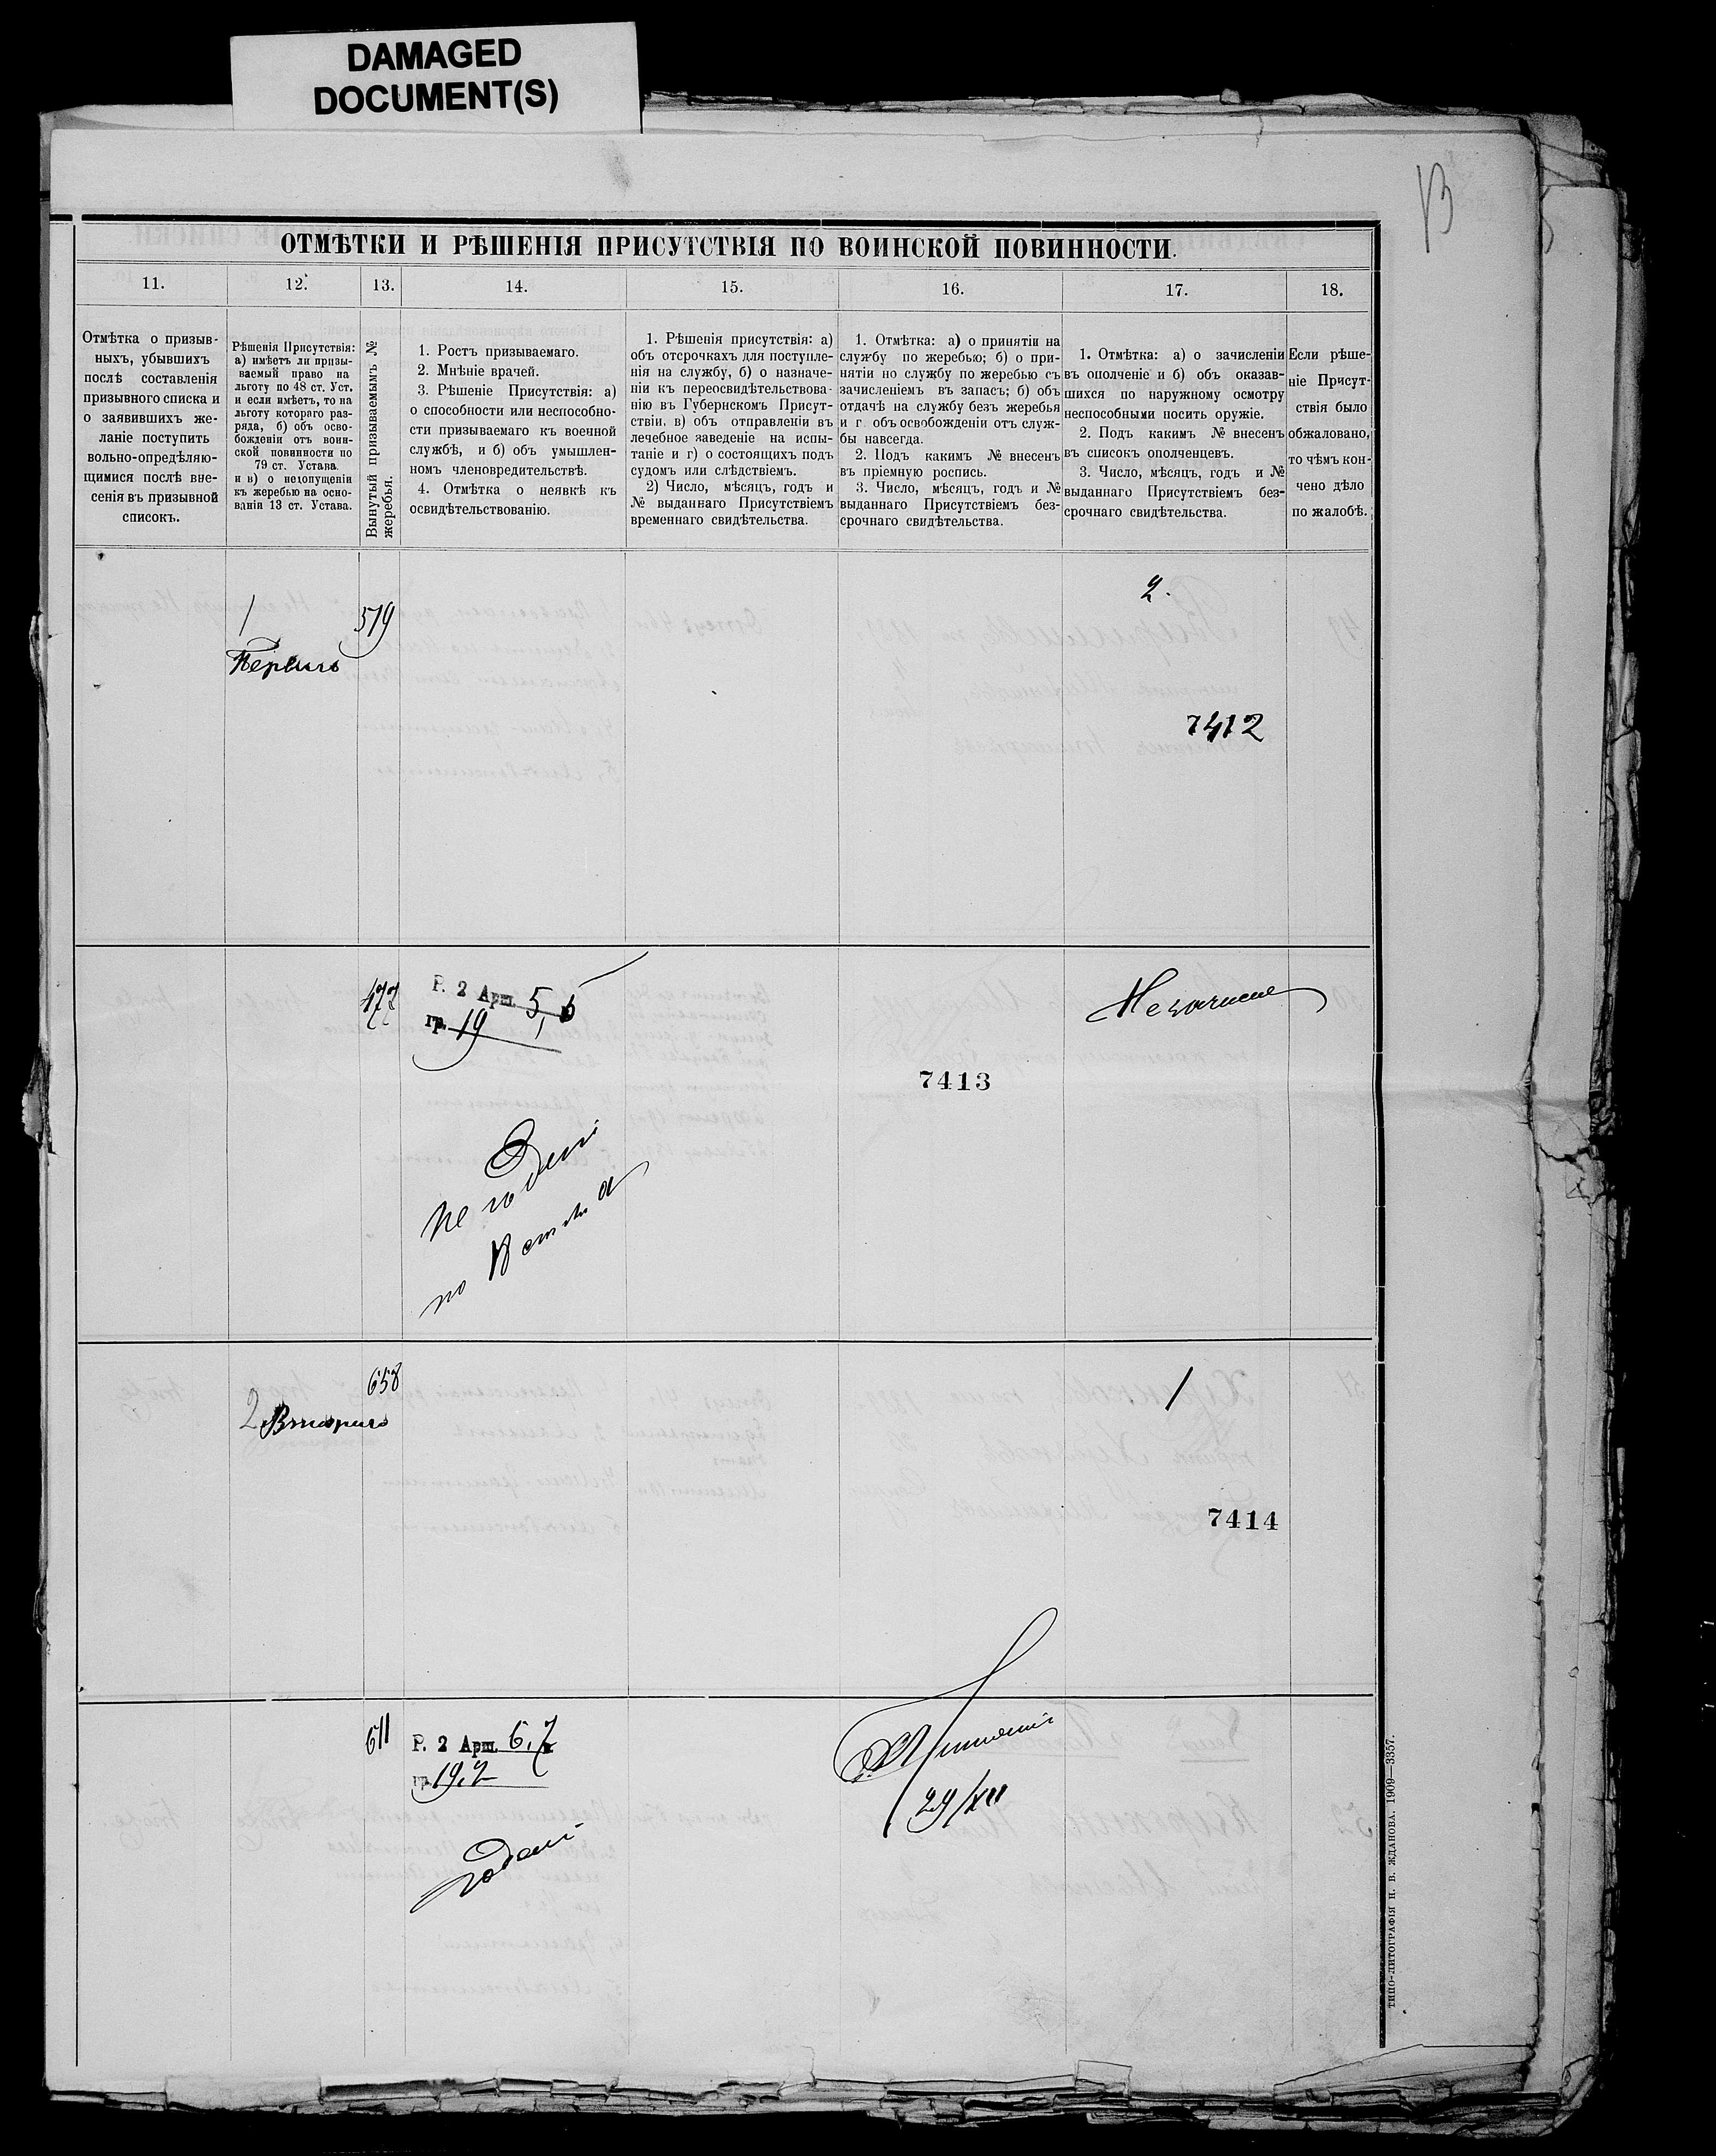 DAMAGED
DOCUMENT(S)
13
ОТМѢТКИ И РѢШЕНІЯ ПРИСУТСТВІЯ ПО ВОИНСКОЙ ПОВИННОСТИ.
11.
12.
13.
14.
15.
16.
17.
18.
Отмѣтка о призыв-
ныхъ, убывшихъ
послѣ составленія
призывного списка и
о заявившихъ же-
ланіе поступить
вольно-опредѣляю-
щимися послѣ вне-
сенія въ призывной
списокъ.
Рѣшенія Присутствія:
а) имѣетъ ли призы-
ваемый право на
льготу по 48 ст. Уст.
и если имѣетъ, то на
льготу котораго раз-
ряда, б) объ осво-
божденіи отъ воин-
ской повинности по
79 ст. Устава.
и в) о недопущеніи
къ жеребью на осно-
ваніи 13 ст. Устава.
Вынутый призываемымъ №
жеребья.
1. Ростъ призываемаго.
2. Мнѣніе врачей.
3. Рѣшеніе Присутствія: а)
о способности или неспособно-
сти призываемаго къ военной
службѣ, и б) объ умышлен-
номъ членовредительствѣ.
4. Отмѣтка о неявкѣ къ
освидѣтельствованію.
1. Рѣшенія присутствія: а)
объ отсрочкахъ для поступле-
нія на службу, б) о назначе-
ніи къ переосвидѣтельствова-
нію въ Губернскомъ Присут-
ствіи, в) объ отправленіи въ
лечебное заведеніе на испы-
таніе и г) о состоящихъ подъ
судомъ или слѣдствіемъ.
2) Число, мѣсяцъ, годъ и
№ выданнаго Присутствіемъ
временнаго свидѣтельства.
1. Отмѣтка: а) о принятіи на
службу по жеребью; б) о при-
нятіи но службу по жеребью съ
зачисленіемъ въ запасъ; б) объ
отдачѣ на службу безъ жеребья
и г объ освобожденіи отъ служ-
бы навсегда.
2. Подъ какимъ № внесенъ
въ пріемную роспись.
3. Число, мѣсяцъ, годъ и №
выданнаго Присутствіемъ без-
срочнаго свидѣтельства.
1. Отмѣтка: а) о зачисленіи
въ ополченіе и б) объ оказав-
шихся по наружному осмотру
неспособными носить оружіе.
2. Подъ какимъ № внесенъ
въ списокъ ополченцевъ.
3. Число, мѣсяцъ, годъ и №
выданнаго Присутствіемъ без-
срочнаго свидѣтельства.
Если рѣше-
ніе Присут-
ствія было
обжаловано,
то чѣмъ кон-
чено дѣло
по жалобѣ.
1
519
2.
7412
477
Р. 2 Арш. 5,5
гр. 19
7413
658
2
1
7414
611
Р. 2 Арш. 6,7
гр. 19,2
годенъ
29/XII
ТИПО-ЛИТОГРАФІЯ Н. В. ЖДАНОВА. 1909—3357.